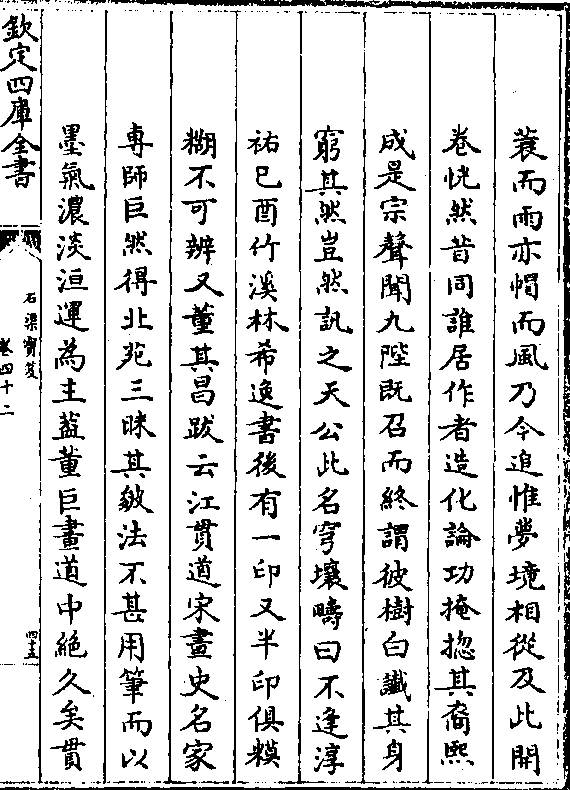 蓑而雨亦帽而風乃今追惟夢境相從及此開
卷恍然昔同誰居作者造化論功掩揔其裔熙
成是宗聲聞九陛既召而終謂彼樹白讖其身
窮其然豈然訊之天公此名穹壤疇曰不逢淳
祐巳酉竹溪林希逸書後有一印又半印俱糢
糊不可辨又董其昌跋云江貫道宋畫史名家
専師巨然得北苑三昧其皴法不甚用筆而以
墨氣濃淡洹運為主葢董巨畫道中絶久矣貫
欽定四庫全書
石渠寶笈
卷四十二
四十五